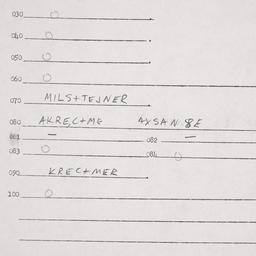 030 O
040 O
050 O
060 O
070 MILS+TEJNER
080 AKRE,C+ME AXSAN 8E
081 — 082 —
083 O 084 O
090 KREC+MER
100 O